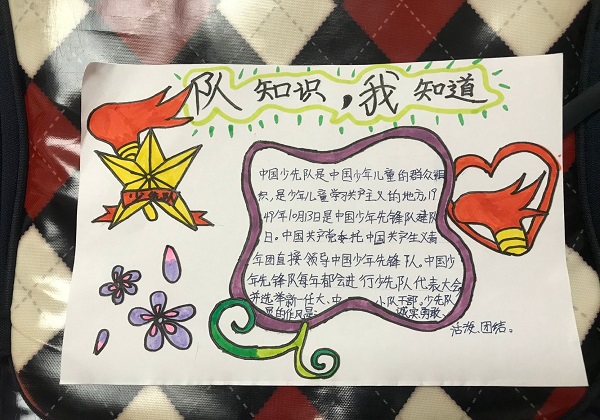 队知识,我知道
中国少先队是中国少年儿童的群众组
织,是少年儿童学习共产主义的地方,19
49年10月13日是中国少年先锋队建队
日。中国共产党委托中国共产主义青
年团直接领导中国少年先锋队。中国少
年先锋队每年都会进行少先队代表大会
并选举新一任大、中 小队干部。少先队
员的作风是: 诚实、勇敢、
活泼、团结。
少先队